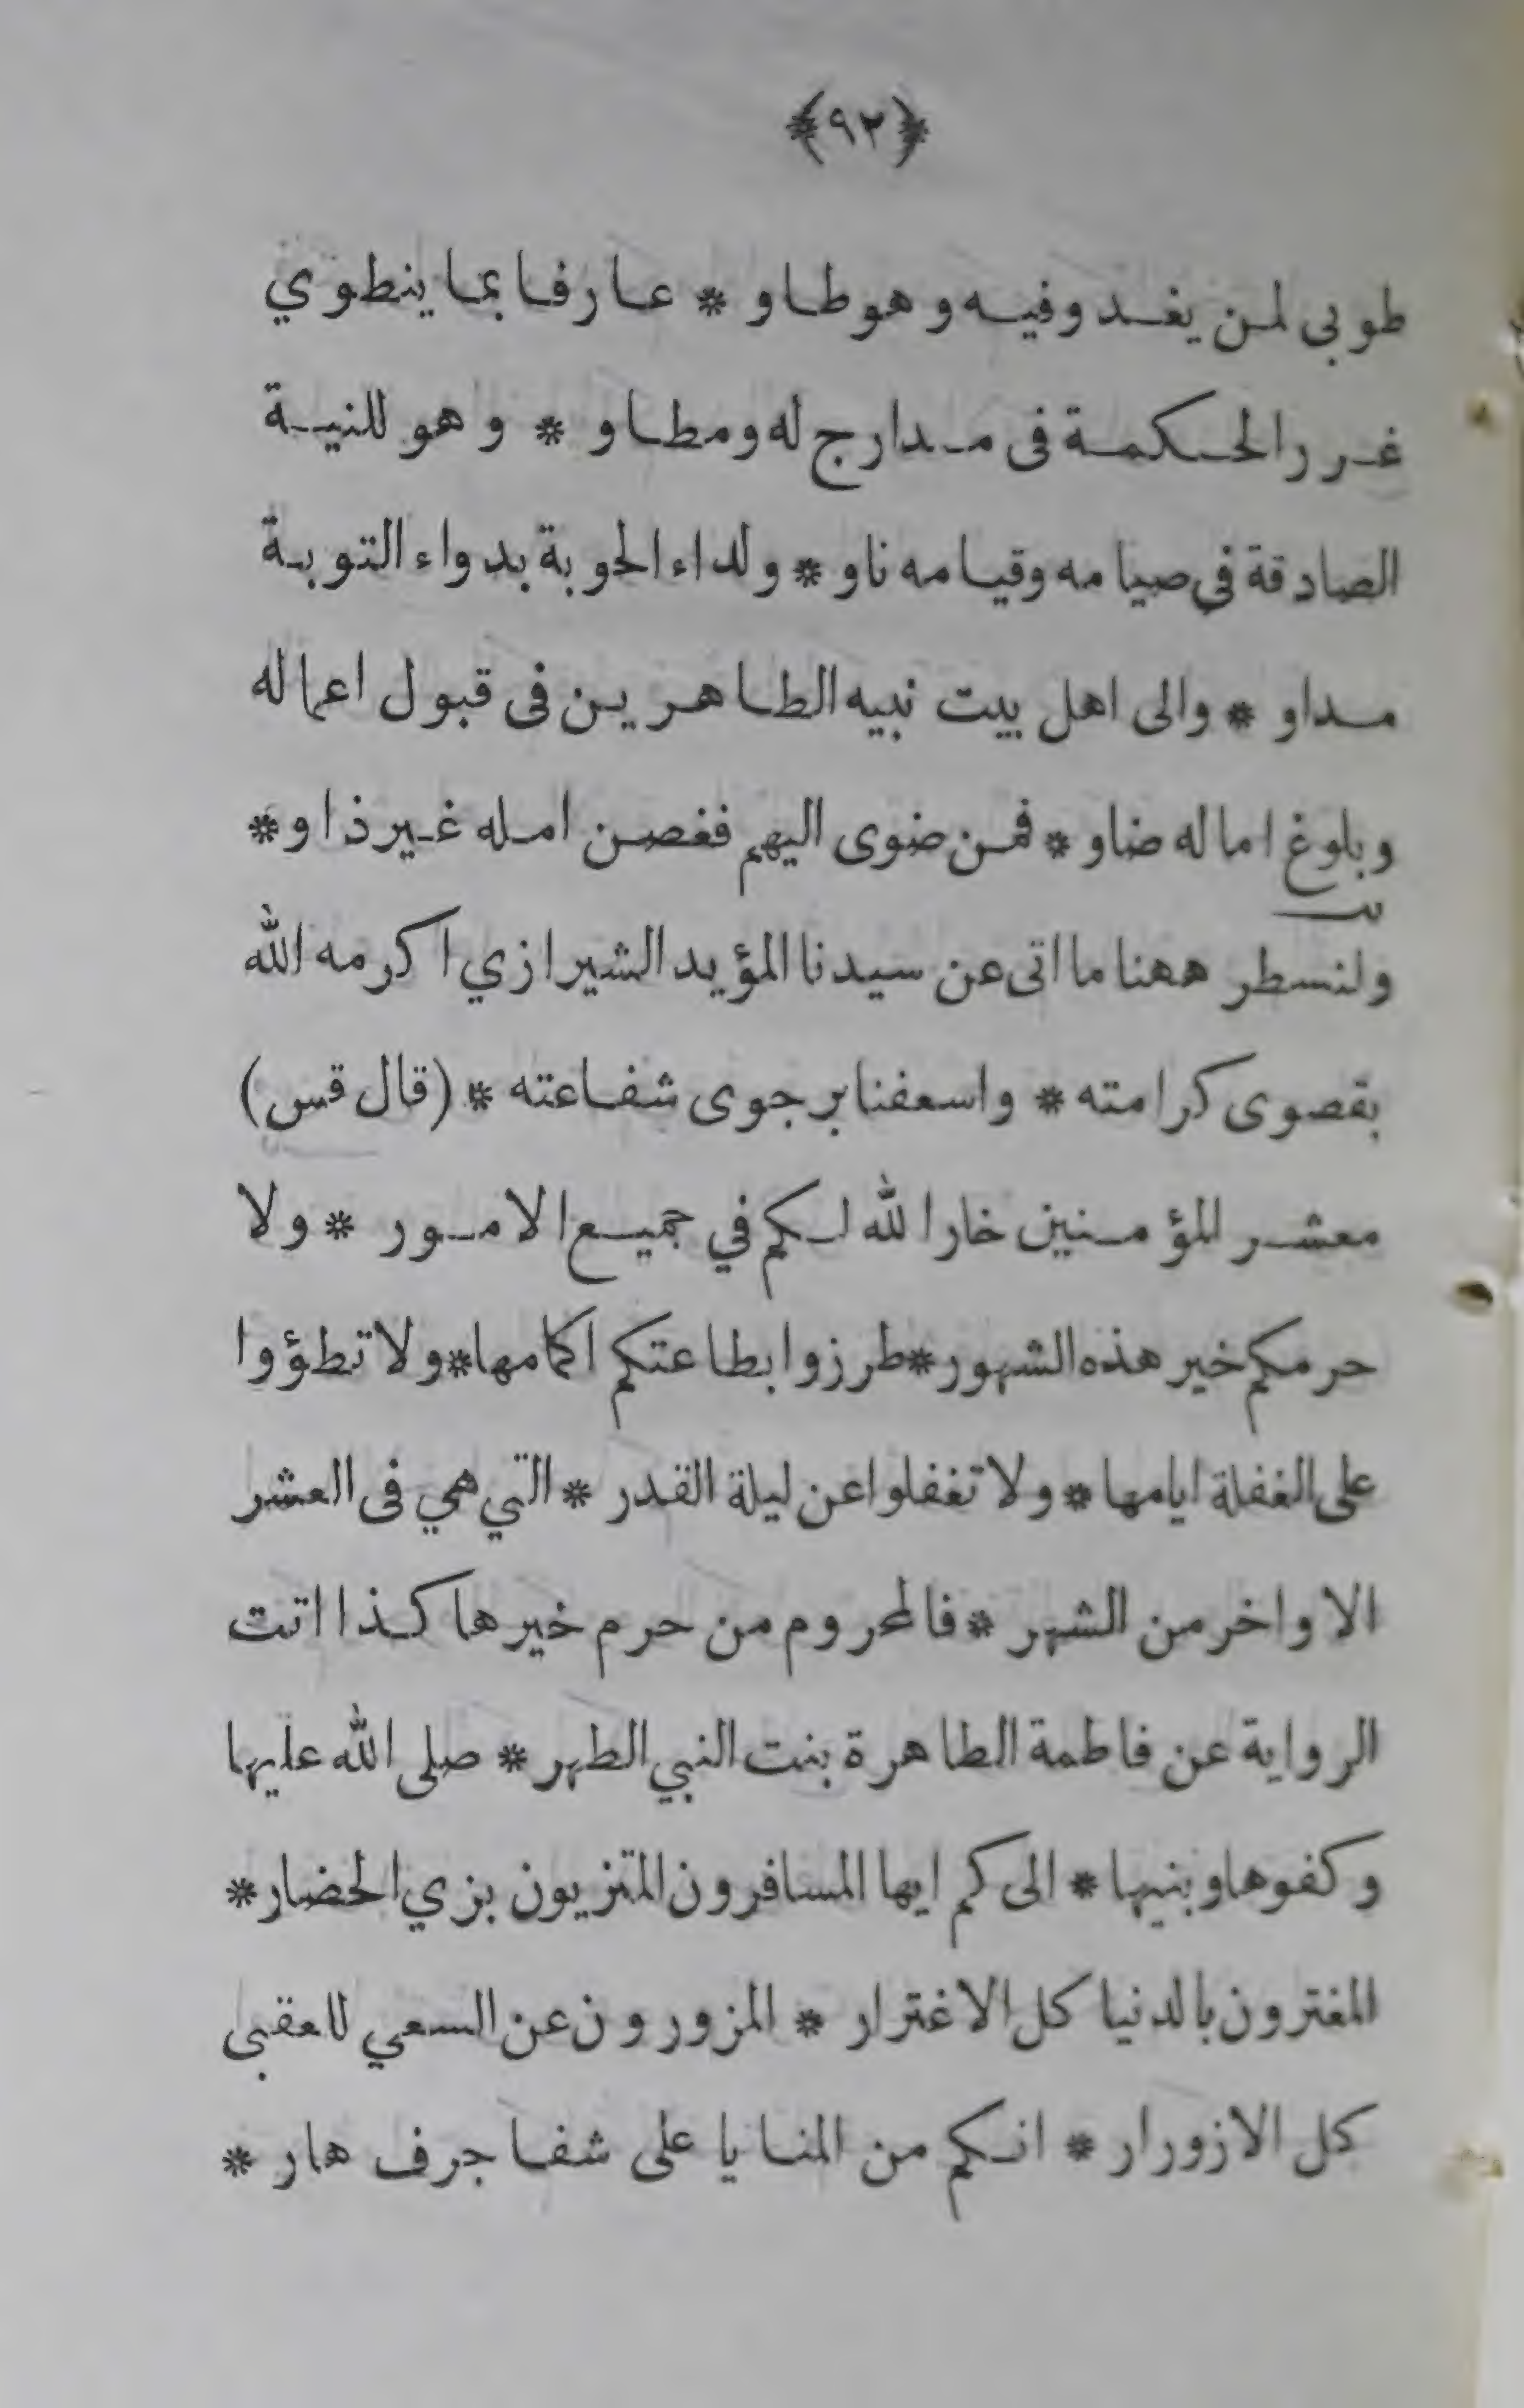 ﴿٩٢﴾
طوبى لمن يغدو فيه وهو طاو * عارفا بما ينطوي
غرر الحكمة فى مدارج له ومطاو * وهو للنية
الصادقة في صيامه وقيامه ناو * ولداء الحوبة بدواء التوبة
مداو * والى اهل بيت نبيه الطاهرين فى قبول اعماله
وبلوغ اماله ضاو * فمن ضوى اليهم فغصن امله غير ذاو *
ولنسطر ههنا ما اتى عن سيدنا المؤيد الشيرازي اكرمه الله
بقصوى كرامته * واسعفنا برجوى شفاعته * (قال قس)
معشر المؤمنين خار الله لكم في جميع الامور * ولا
حرمكم خير هذه الشهور * طرزوا بطاعتكم اكمامها * ولا تطؤوا
على الغفلة ايامها * ولا تغفلوا عن ليلة القدر * التي هي فى العشر
الاواخر من الشهر * فالمحروم من حرم خيرها كذا اتت
الرواية عن فاطمة الطاهرة بنت النبي الطهر * صلى الله عليها
وكفوها وبنيها * الى كم ايها المسافرون المتزيون بزي الحضار *
المغترون بالدنيا كل الاغترار * المزورون عن السعي للعقبى
كل الازورار * انكم من المنايا على شفا جرف هار *